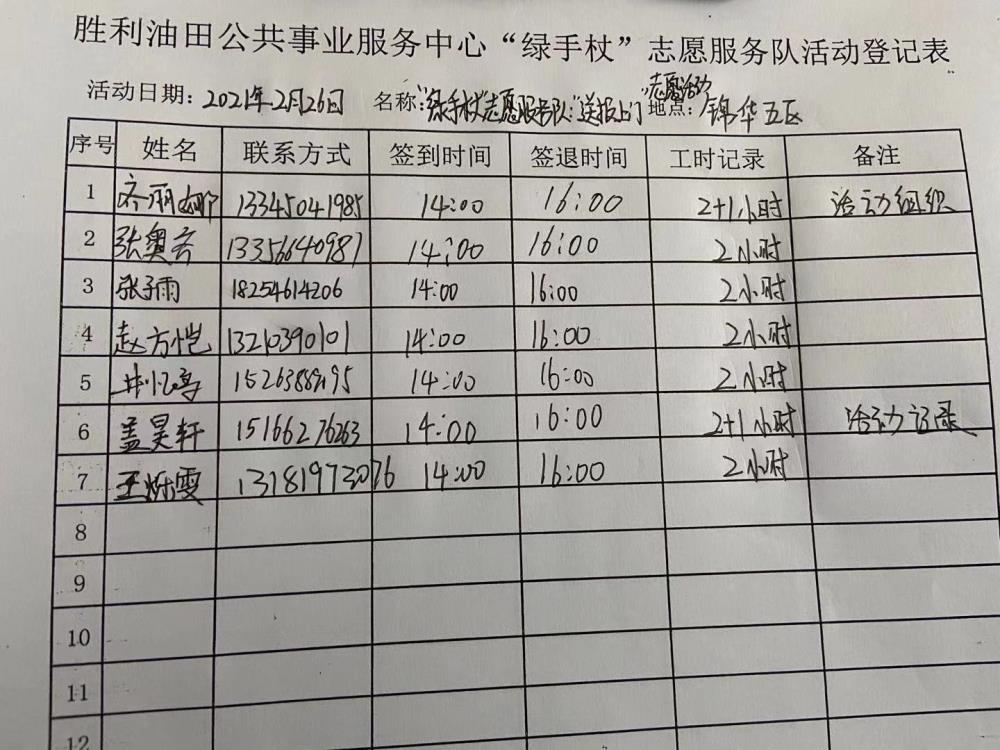 胜利油田公共事业服务中心“绿手杖”志愿服务队活动登记表
活动日期：2021年2月26日 名称：“绿手杖”志愿服务队“送报上门”志愿活动 地点：锦华五区
序号 姓名 联系方式 签到时间 签退时间 工时记录 备注
1 齐丽娜 13345041985 14:00 16:00 2+1小时 活动组织
2 张奥 13356640987 14:00 16:00 2小时
3 张子雨 18254614206 14:00 16:00 2小时
4 赵方恺 13210390101 14:00 16:00 2小时
5 井忆 14:00 16:00 2小时
6 盖昊轩 15166276263 14:00 16:00 2+1小时 活动记录
7 王烁雯 13181973076 14:00 16:00 2小时
8
9
10
11
12